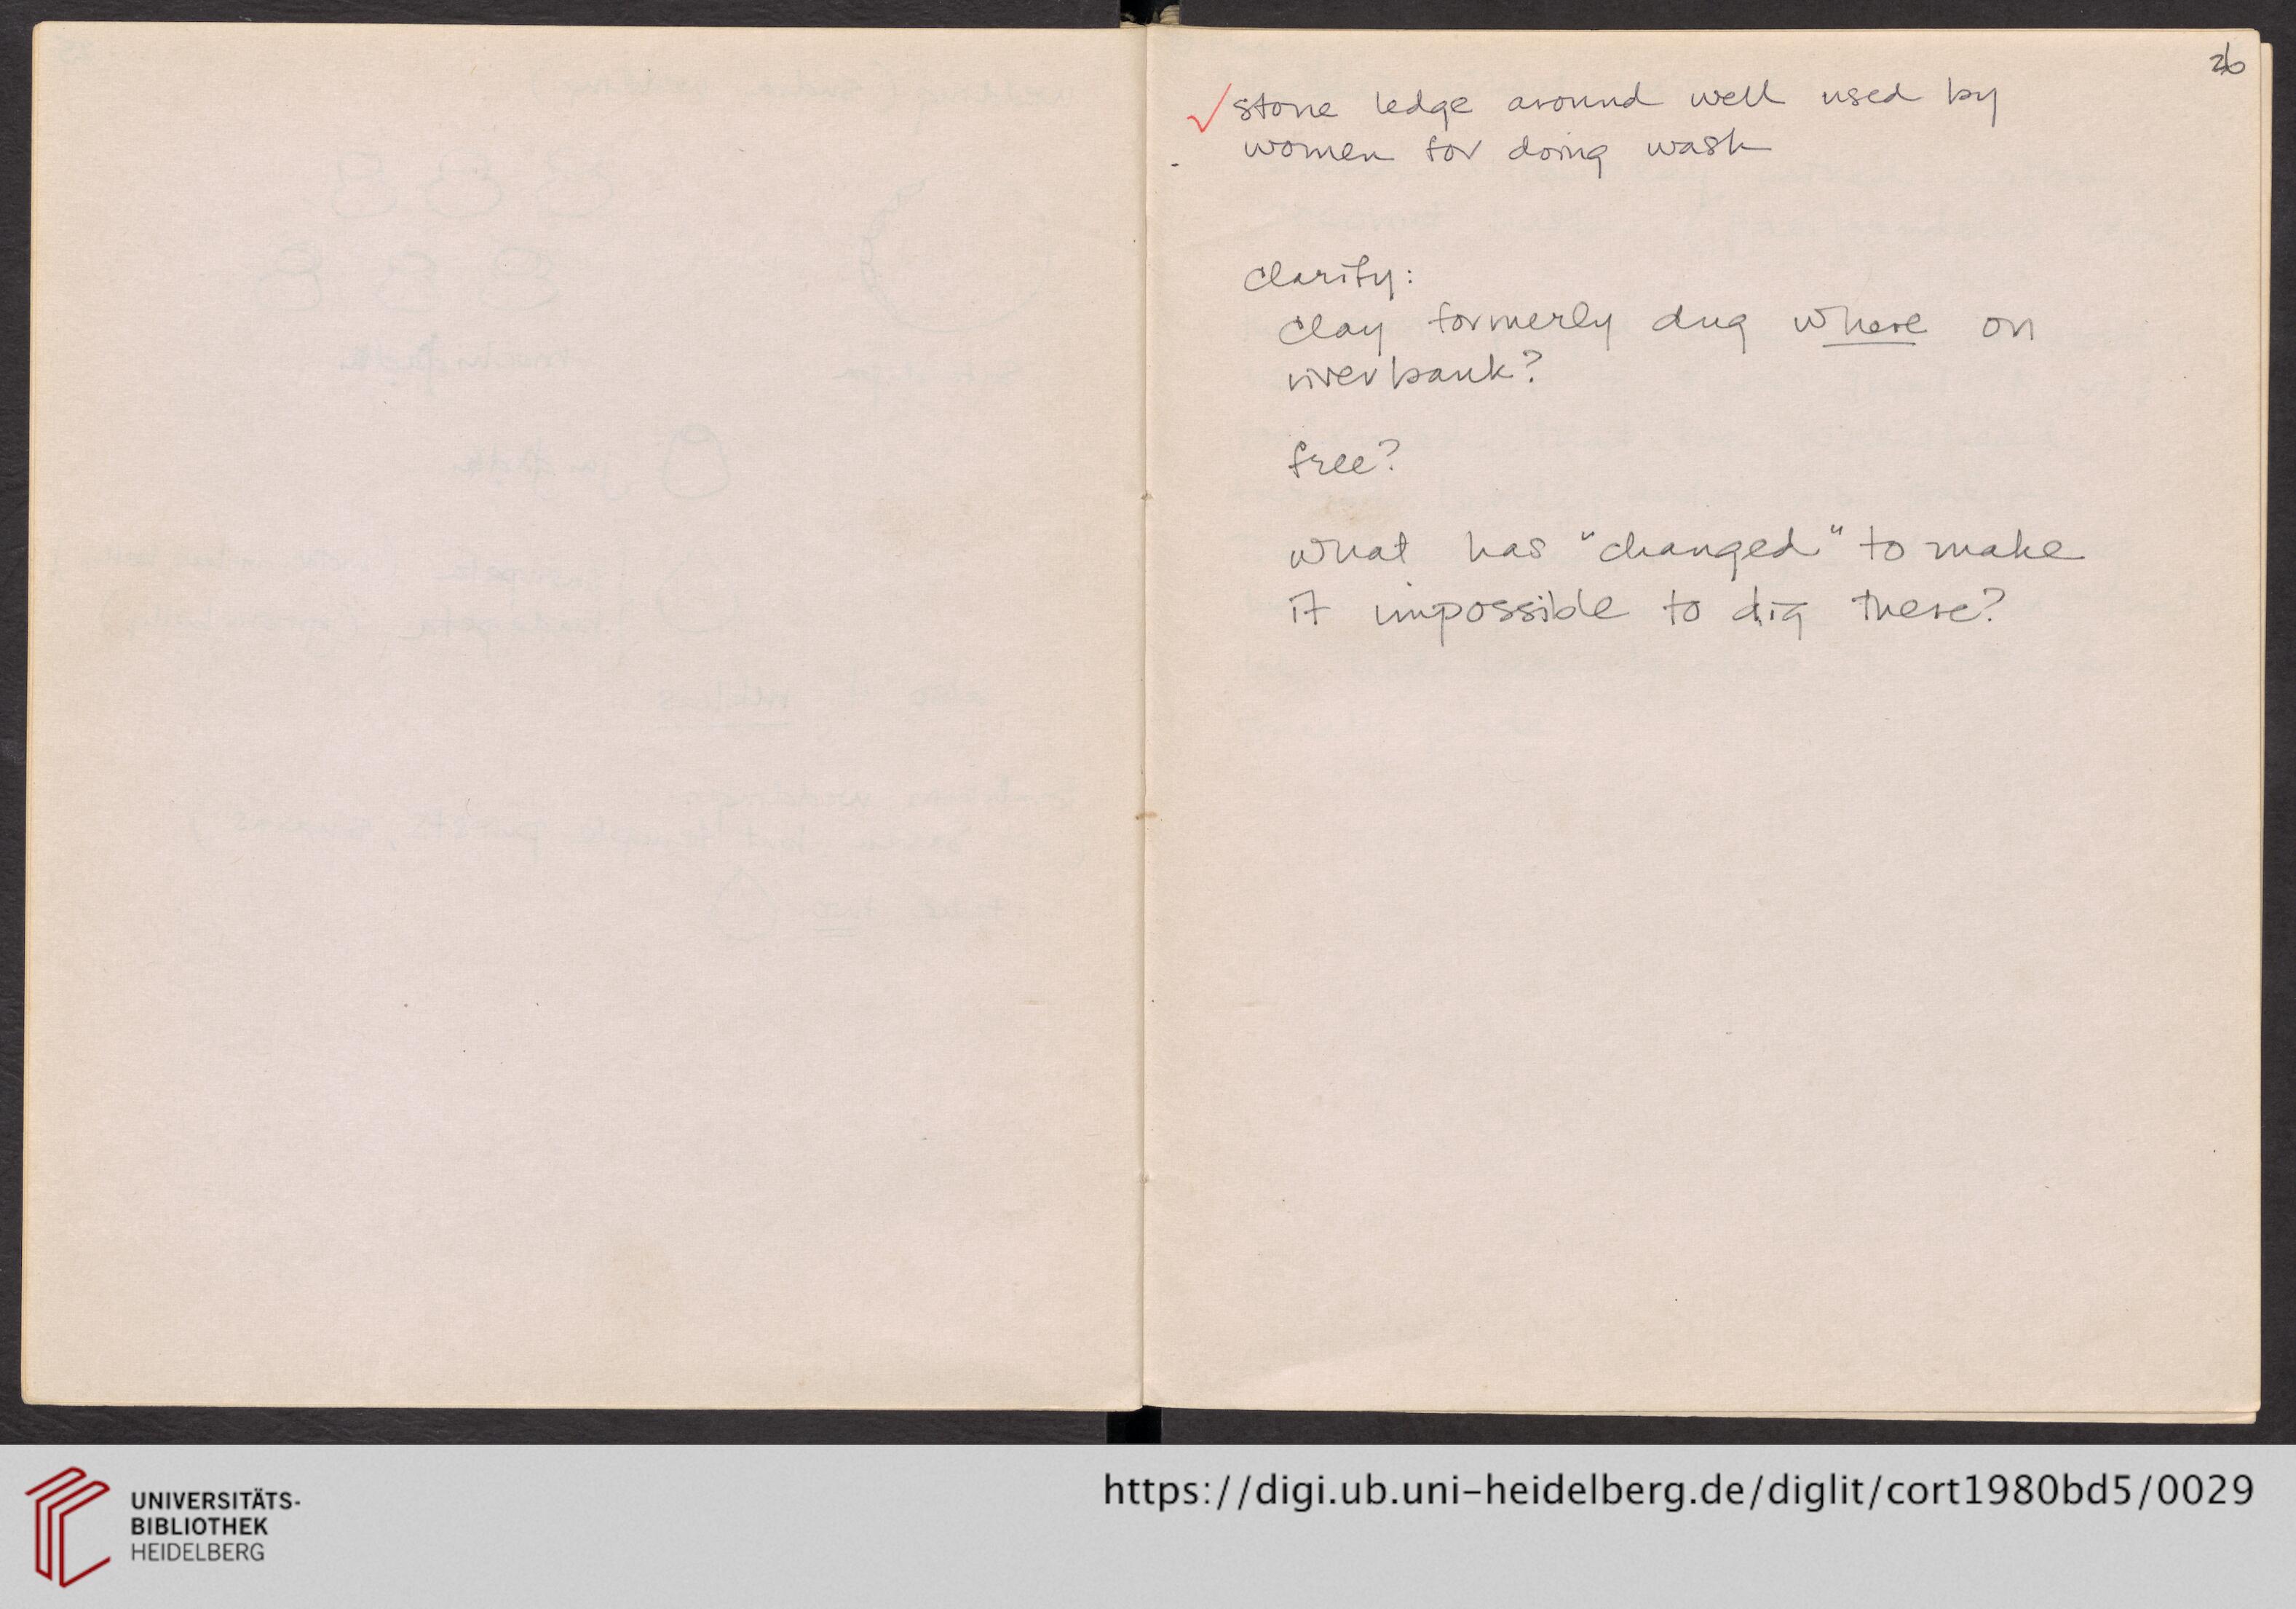 26
stone ledge around well used by
women for doing wash
clarify:
clay formerly dug where on
riverbank?
free?
what has "changed" to make
it impossible to dig there?
UNIVERSITÄTS-
BIBLIOTHEK
HEIDELBERG
https://digi.ub.uni-heidelberg.de/diglit/cort1980bd5/0029